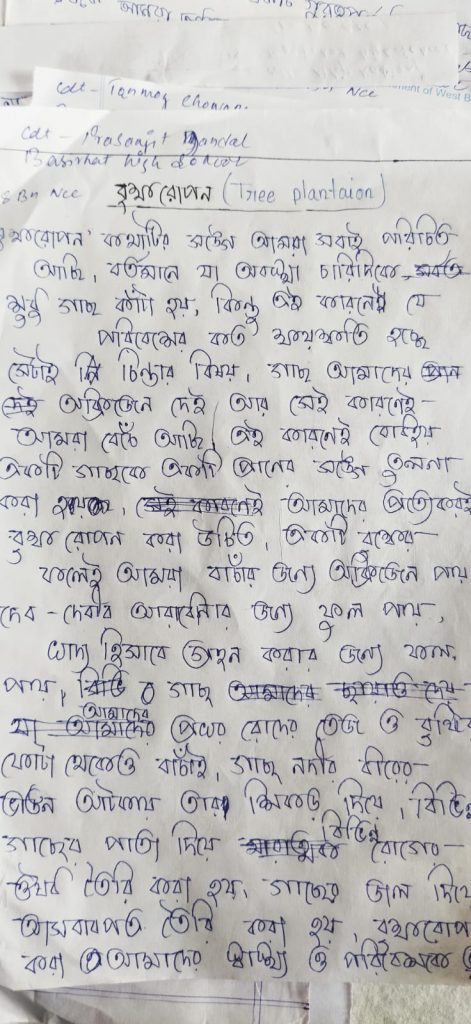 আমরা
cdt - Tanmoy Chowan
NCC
ment of West B
cdt - Prasanjit Mandal
Basirhat high School
8 Bn Ncc বৃক্ষরোপন (Tree plantaion)
বৃক্ষরোপন কথাটির সঙ্গে আমরা সবাই পরিচিতি
আছি, বর্তমানে যা অবস্থা চারিদিকে
শুধু গাছ কাটা হয়, কিন্তু এই কারনেই যে
পরিবেশের কত ক্ষয়ক্ষতি হচ্ছে
সেটাই চিন্তার বিষয়, গাছ আমাদের
অক্সিজেন দেই আর সেই কারনেই
আমরা বেঁচে আছি, এই কারনেই বোধহয়
একটি গাছকে একটি প্রানের সঙ্গে তুলনা
করা হয়, আমাদের প্রত্যেকেরই
বৃক্ষ রোপন করা উচিত, একটি বৃক্ষের
ফলেই আমরা বাঁচার জন্যে অক্সিজেন পায়
দেব-দেবীর আরাধনার জন্যে ফুল পায়,
খাদ্য হিসাবে গ্রহন করার জন্যে ফল
পায়, গাছ
আমাদের প্রখর রোদের তেজ ও বৃষ্টির
ফোটা থেকেও বাঁচাই, গাছ নদীর তীরের
ভাঙন আটকায় তার শিকড় দিয়ে, বিভিন্ন
গাছের পাতা দিয়ে বিভিন্ন রোগের
ঔষধ তৈরি করা হয়, গাছের ডাল দিয়ে
আসবাবপত্র তৈরি করা হয়, বৃক্ষরোপ
করা আমাদের স্বাস্থ্য ও পরিবেশকে